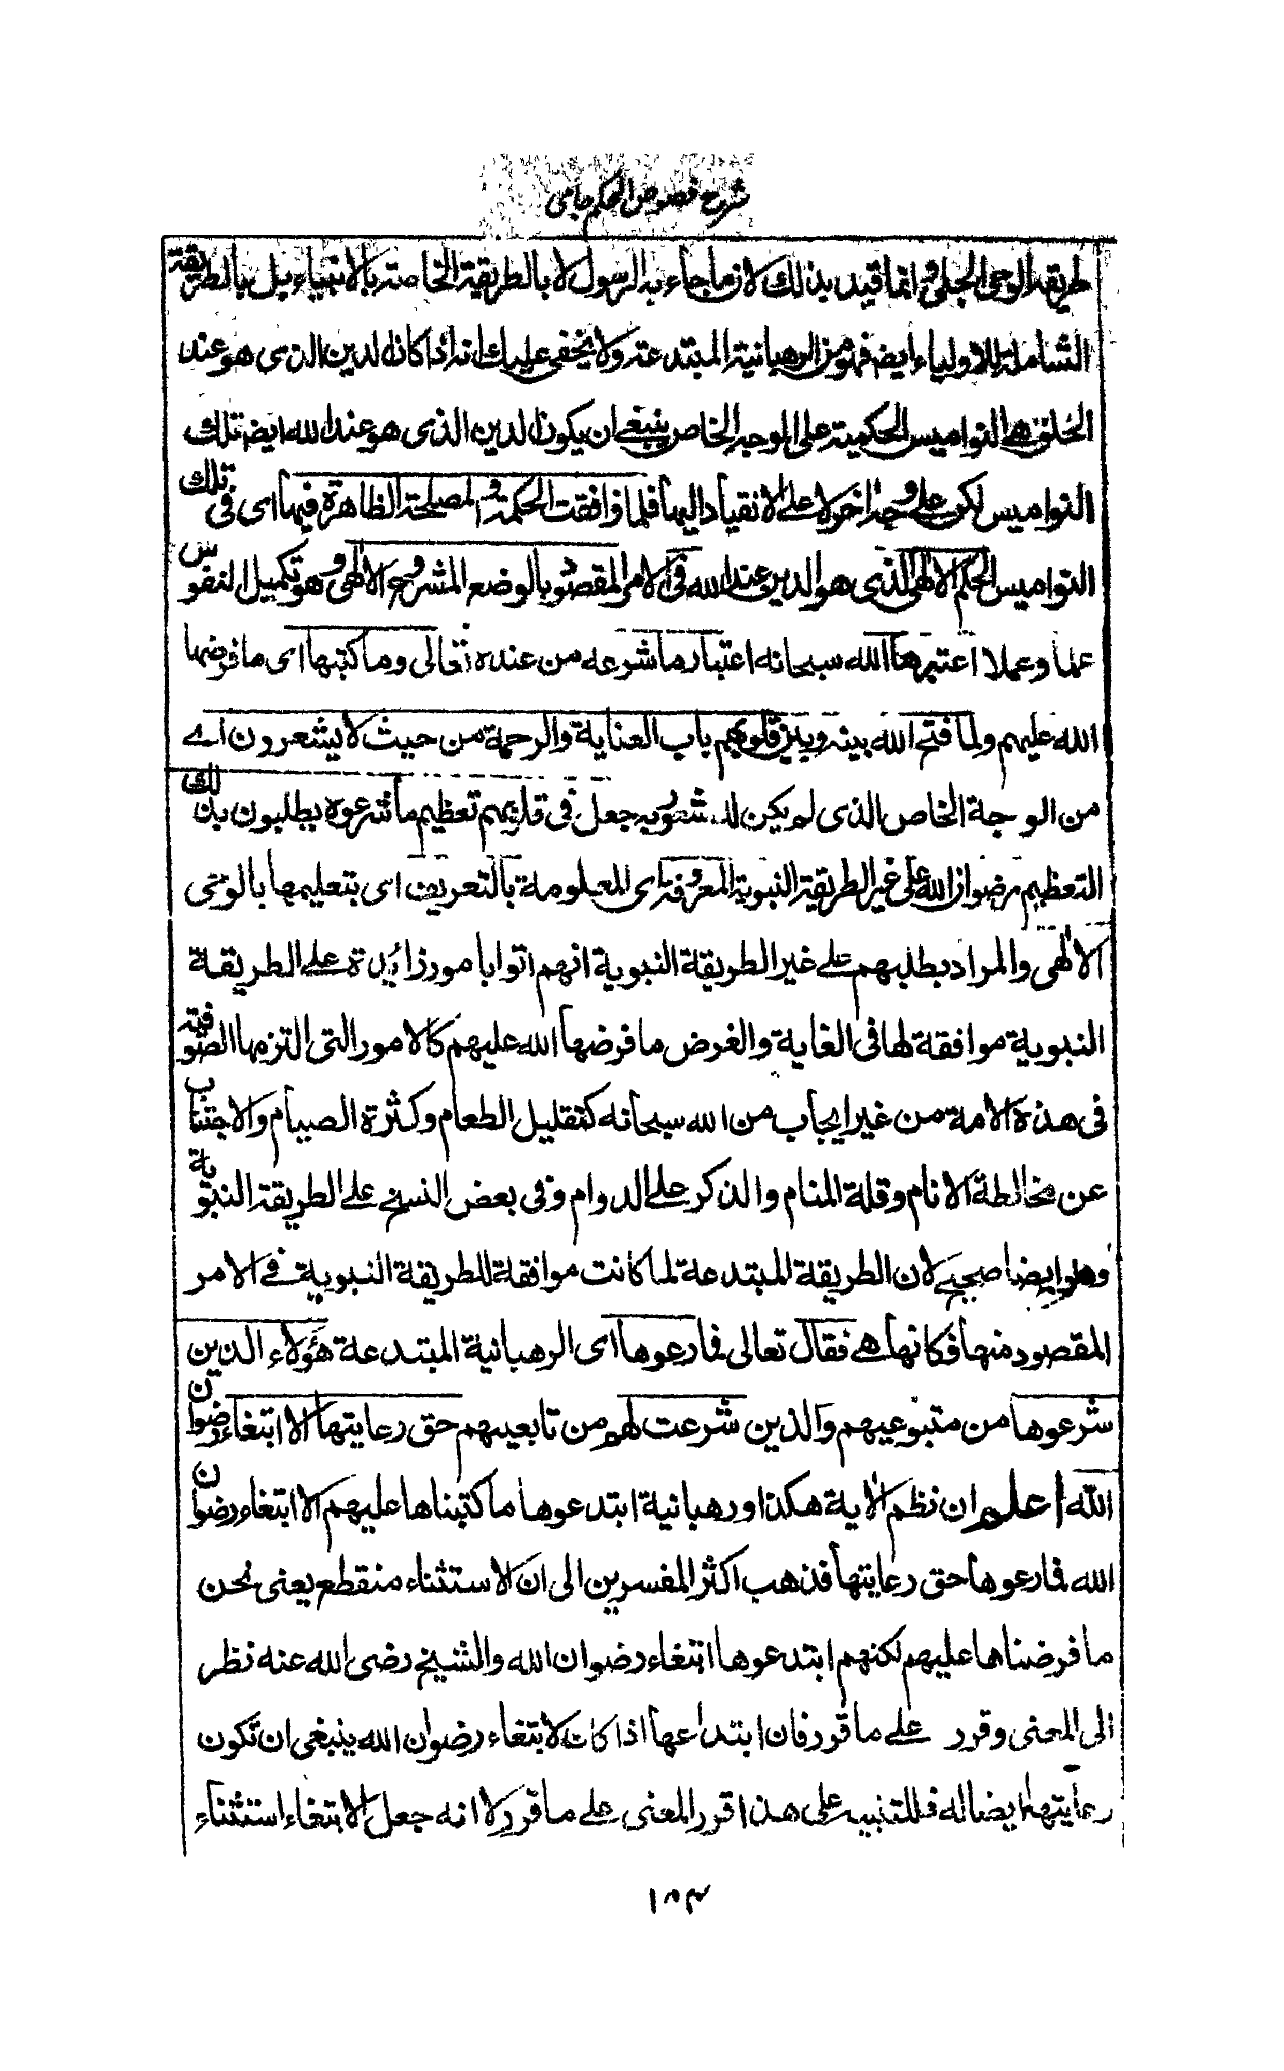 شرح فصوص الحكم جامى
طريقة الوحى الجلى وانما قيد بذلك لان ما جاء به الرسول لا بالطريقة الخاصة بالانبياء بل بالطريقة
الشاملة للاولياء ايضا فهو من الرهبانية المبتدعة ولا يخفى عليك انه اذا كان الدين الذى هو عند
الخلق هى النواميس الحكمية على الوجه الخاص ينبغى ان يكون الدين الذى هو عند الله ايضا تلك
النواميس لكن على وجه اخر لا على الانقياد اليها فلما وافقت الحكمة والمصلحة الظاهرة فيها اى فى تلك
النواميس الحكم الالهى الذى هو الدين عند الله فى الامر المقصود بالوضع المشروع الالهى وهو تكميل النفوس
علما وعملا اعتبرها الله سبحانه اعتبار ما شرعه من عنده تعالى وما كتبها اى ما فرضها
الله عليهم ولما فتح الله بينه وبين قلوبهم باب العناية والرحمة من حيث لا يشعرون اے
من الوجة الخاص الذى لم يكن لله شعور به جعل فى قلوبهم تعظيم ما شرعوه يطلبون بذلك
التعظيم رضوان الله على غير الطريقة النبوية المعروفة اى المعلومة بالتعريف اى بتعليمها بالوحى
الالهى والمراد بطلبهم على غير الطريقة النبوية انهم اتوا بامور زايدة على الطريقة
النبوية موافقة لها فى الغاية والغرض ما فرضها الله عليهم كالامور التى التزمها الصوفية
فى هذه الامة من غير ايجاب من الله سبحانه كتقليل الطعام وكثرة الصيام والاجتناب
عن مخالطة الانام وقلة المنام والذكر على الدوام وفى بعض النسخ على الطريقة النبوية
وهو ايضا صحيح لان الطريقة المبتدعة لما كانت موافقة للطريقة النبوية فى الامر
المقصود منها فكانها هى فقال تعالى فما رعوها اى الرهبانية المبتدعة هؤلاء الذين
شرعوها من متبوعيهم والذين شرعت لهم من تابعيهم حق رعايتها الا ابتغاء رضوان
الله اعلم ان نظم الاية هكذا ورهبانية ابتدعوها ما كتبناها عليهم الا ابتغاء رضوان
الله فما رعوها حق رعايتها فذهب اكثر المفسرين الى ان الاستثناء منقطع يعنى نحن
ما فرضناها عليهم لكنهم ابتدعوها ابتغاء رضوان الله والشيخ رضى الله عنه نظر
الى المعنى وقرر على ما قرر فان ابتداعها اذا كان لابتغاء رضوان الله ينبغى ان تكون
رعايتها ايضا له فللتنبيه على هذا قرر المعنى على ما قرر لا انه جعل الابتغاء استثناء
١٥٣